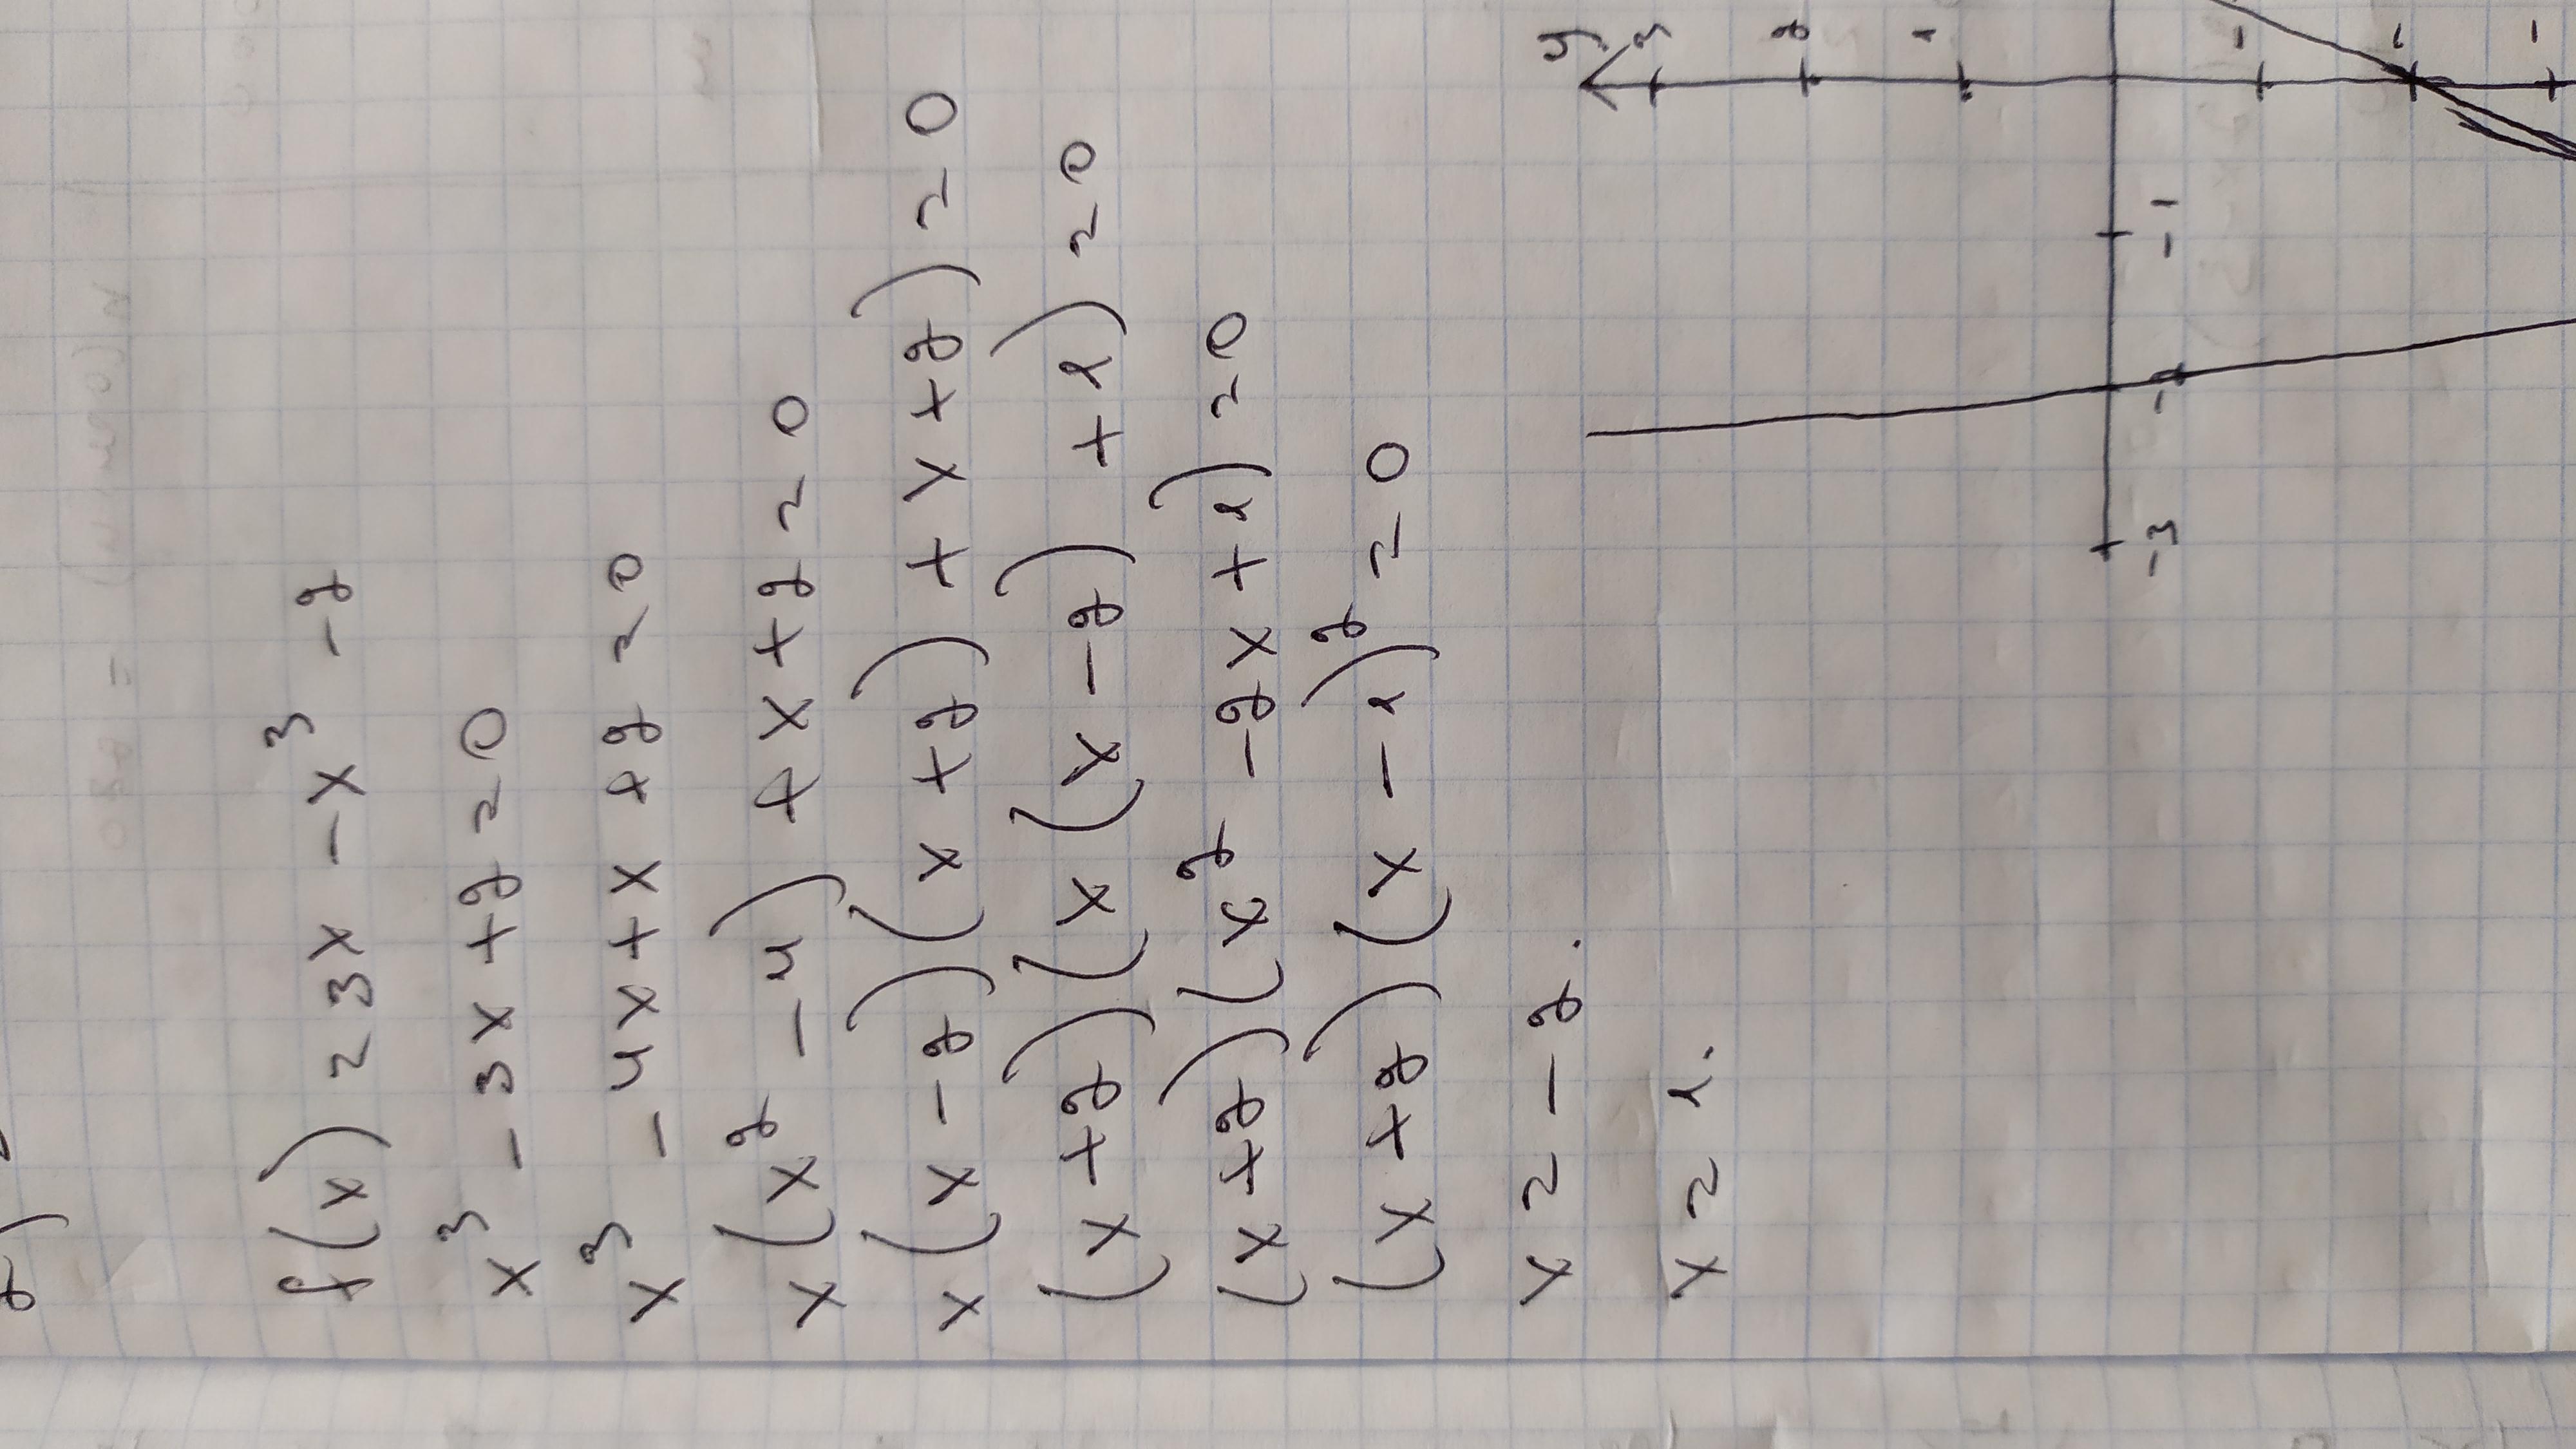 f(x) = 3x - x³ - 2
x³ - 3x + 2 = 0
x³ - 4x + x + 2 = 0
x(x² - 4) + x + 2 = 0
x(x - 2)(x + 2) + x + 2) = 0
(x + 2)(x(x - 2) + 1) = 0
(x + 2)(x² - 2x + 1) = 0
(x + 2)(x - 1)² = 0
x = -2.
x = 1.
y
3
2
1
-3 -2 -1